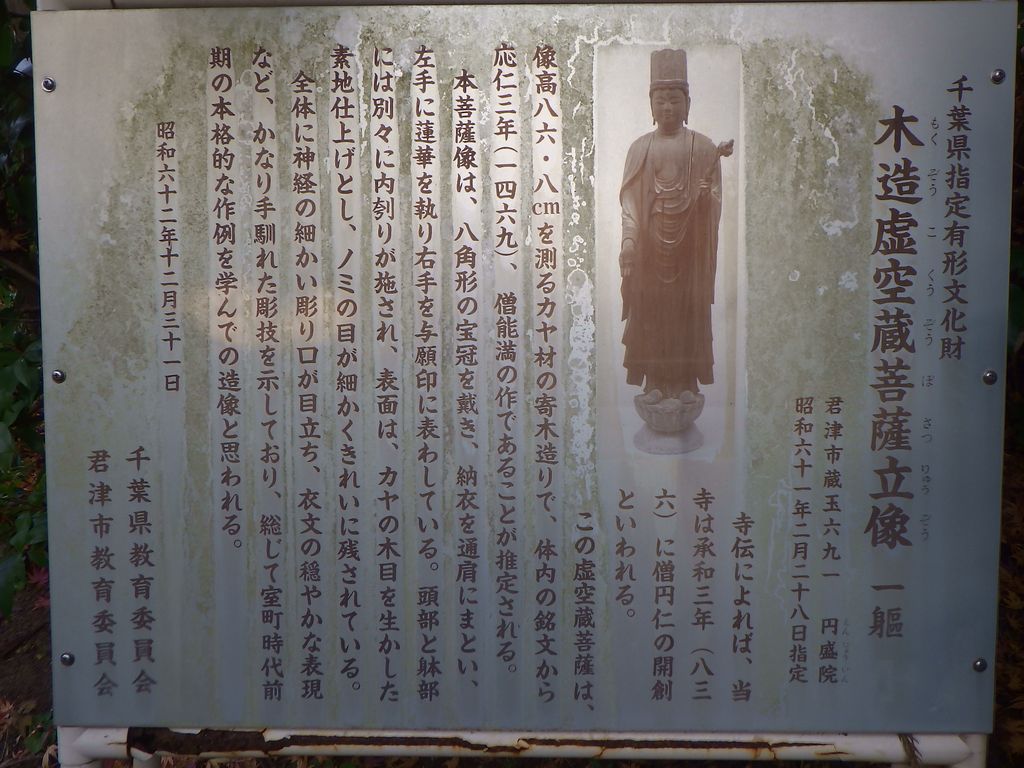 千葉県指定有形文化財
木造虚空蔵菩薩立像 一軀
もくぞうこくうぞうぼさつりゅうぞう
君津市蔵玉六九一 円盛院
えんじょういん
昭和六十一年二月二十八日指定
寺伝によれば、当
寺は承和三年(八三
六)に僧円仁の開創
といわれる。
この虚空蔵菩薩は、
像高八六・八cmを測るカヤ材の寄木造りで、体内の銘文から
応仁三年(一四六九)、僧能満の作であることが推定される。
本菩薩像は、八角形の宝冠を戴き、納衣を通肩にまとい、
左手に蓮華を執り右手を与願印に表わしている。頭部と躰部
には別々に内刳りが施され、表面は、カヤの木目を生かした
素地仕上げとし、ノミの目が細かくきれいに残されている。
全体に神経の細かい彫り口が目立ち、衣文の穏やかな表現
など、かなり手馴れた彫技を示しており、総じて室町時代前
期の本格的な作例を学んでの造像と思われる。
昭和六十二年十二月三十一日
千葉県教育委員会
君津市教育委員会